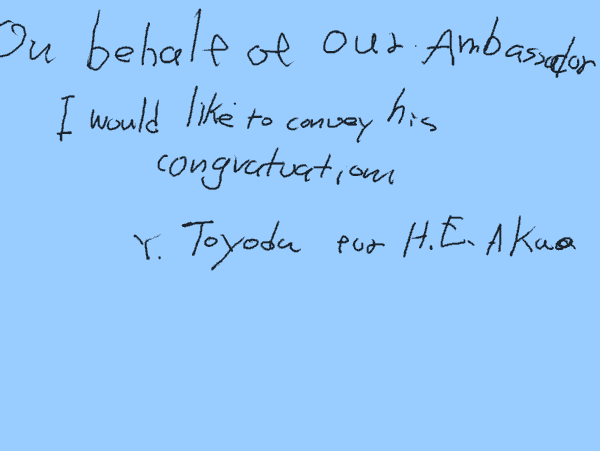 On behalf of our Ambassador
I would like to convey his
congratuations
Y. Toyoda for H.E. Akao